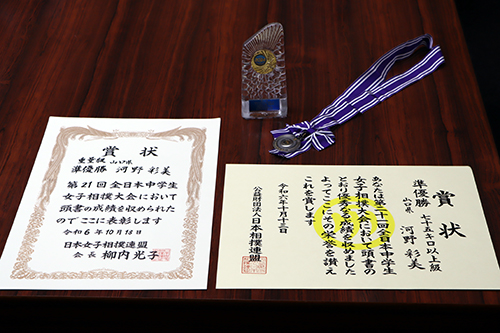 賞状
重量級 山口県
準優勝 河野彩美
第21回全日本中学生
女子相撲大会において
頭書の成績を収められた
のでここに表彰します
令和6年10月13日
日本女子相撲連盟
会長 柳内光子
賞状
準優勝 七十五キロ以上級
山口県 河野彩美
あなたは第二十一回全日本中学生
女子相撲大会において頭書の
とおり優秀なる成績を収めました
よってここにその栄誉を讃え
これを賞します
令和六年十月十三日
公益財団法人日本相撲連盟